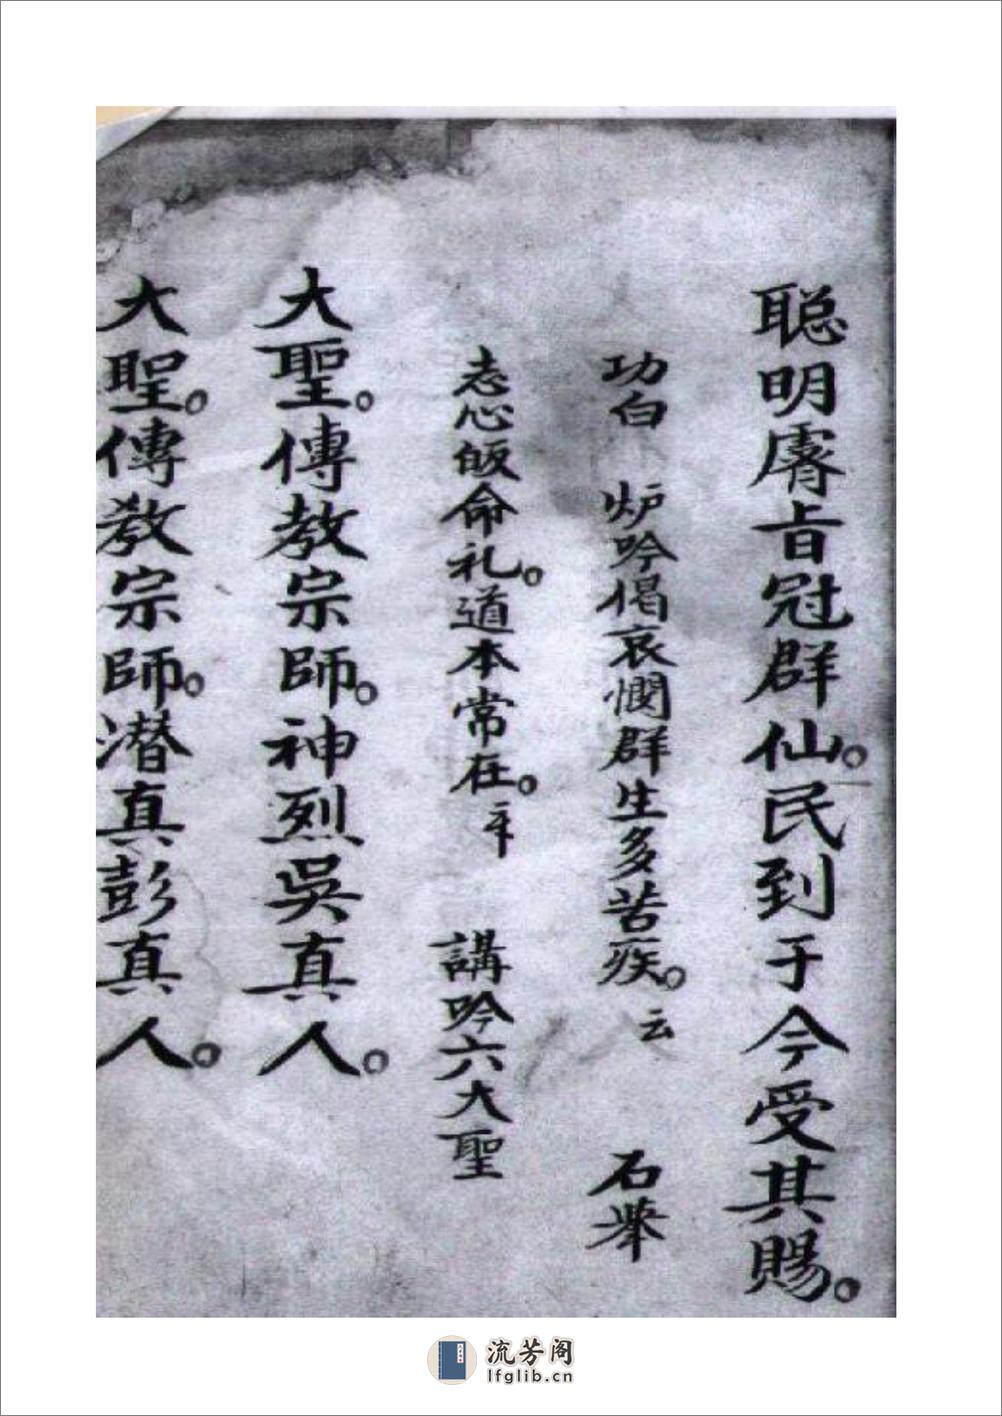 聪明睿旨冠群仙。民到于今受其賜。
功白 炉吟偈哀憫群生多苦疾。云 石举
志心皈命礼。道本常在。 講吟六大聖
大聖。傳教宗師。神烈吳真人。
大聖。傳教宗師。潜真彭真人。
流芳阁
lfglib.cn